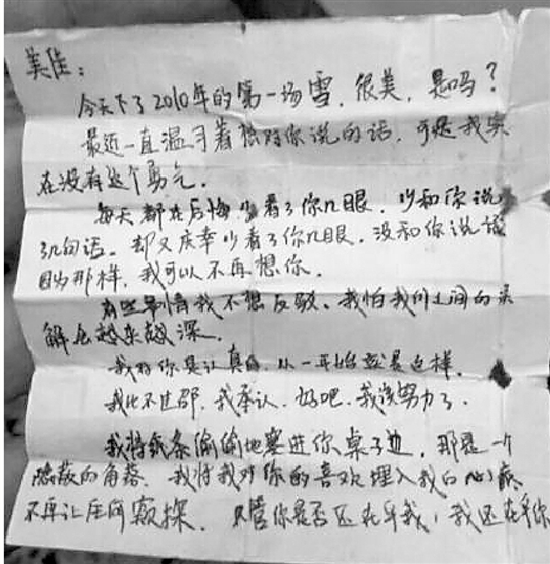 美佳：
今天下了2010年的第一场雪，很美，是吗？
最近一直温习着想对你说的话，可是我实
在没有这个勇气。
每天都在后悔少看了你几眼，少和你说
了几句话。却又庆幸少看了你几眼，没和你说话
因为那样，我可以不再想你。
有些事情我不想反驳，我怕我们之间的误
解会越来越深。
我对你是认真的，从一开始就是这样。
我比不过邵，我承认，好吧，我该努力了。
我将纸条偷偷地塞进你桌子边，那是一个
隐蔽的角落，我将我对你的喜欢埋入我的心底
不再让任何窥探，只管你是否还在乎我，我还在乎你